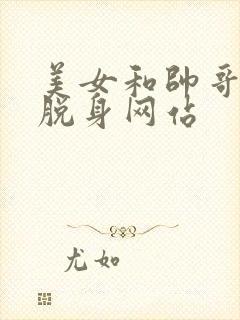 美女和帥哥
脱身网佔
尤如